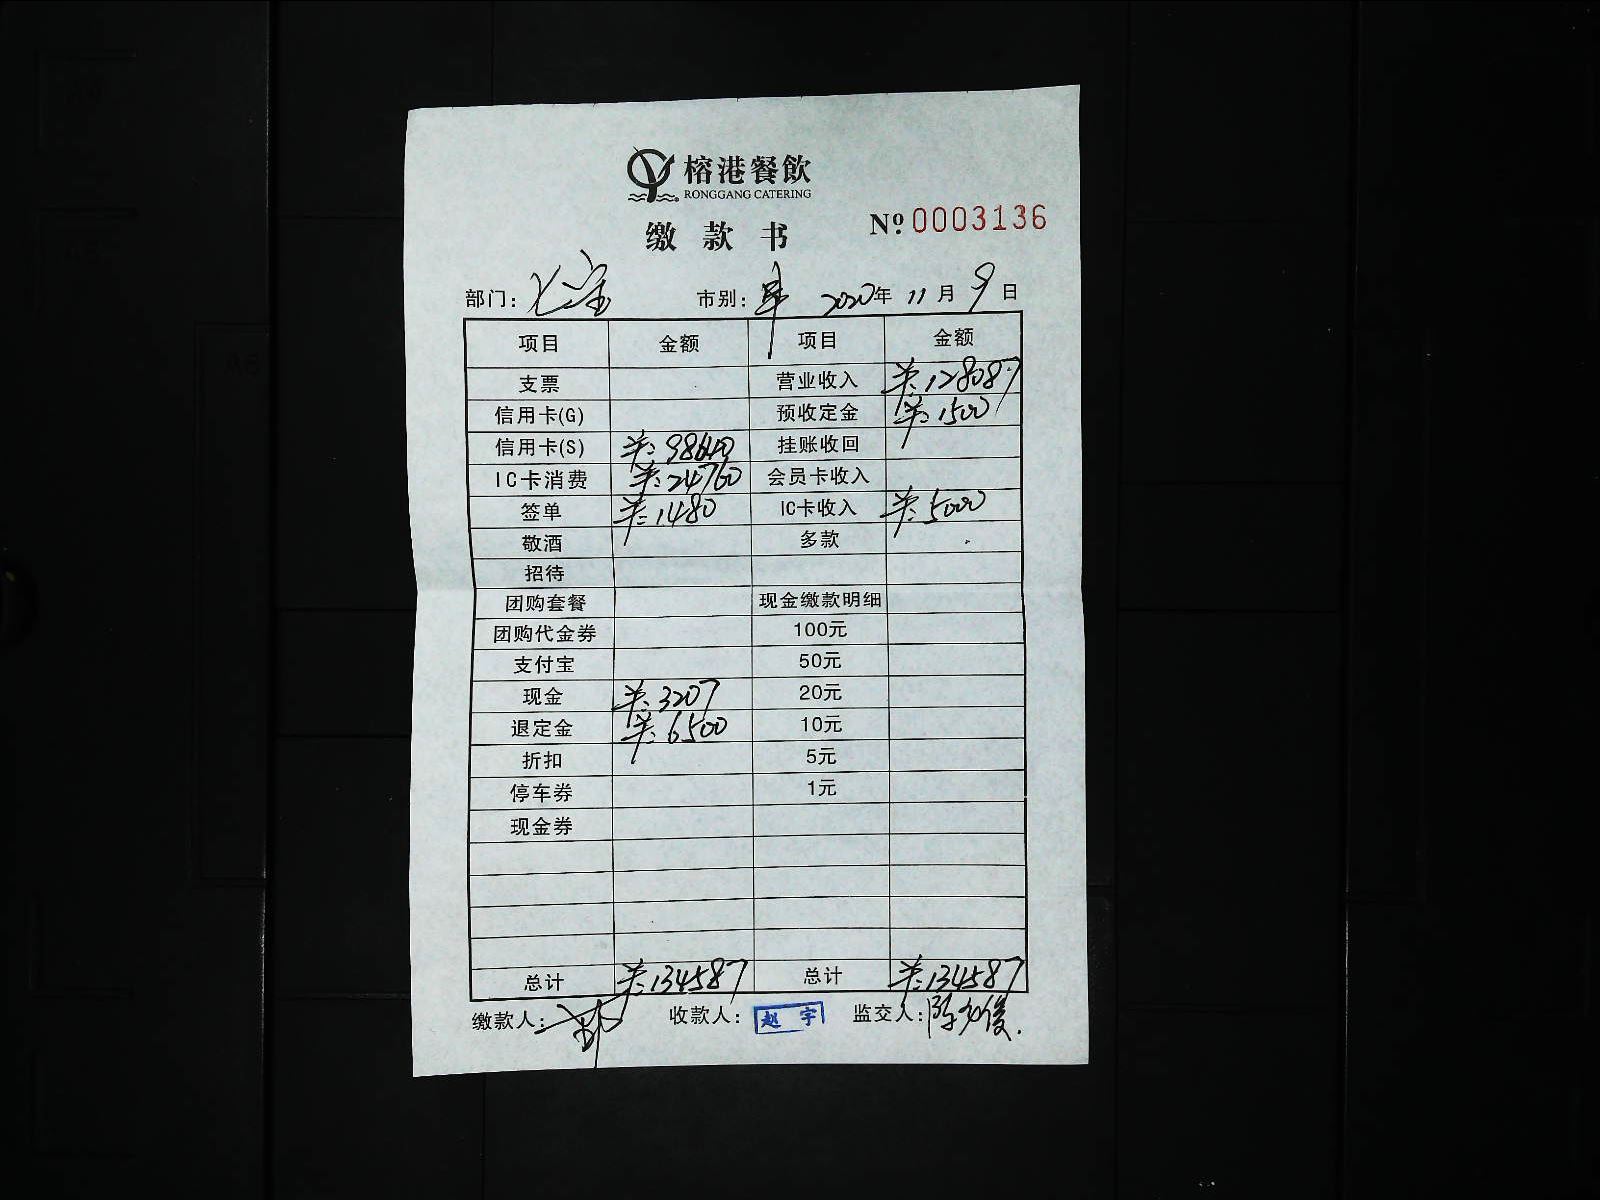 榕港餐飲
RONGGANG CATERING
缴款书 № 0003136
部门: 七宝 市别: 2020年 11月 9日
项目 金额 项目 金额
支票 营业收入 ¥:128087
信用卡(G) 预收定金 ¥:1500
信用卡(S) ¥:98640 挂账收回
IC卡消费 ¥:24760 会员卡收入
签单 ¥:1480 IC卡收入 ¥:5000
敬酒 多款
招待
团购套餐 现金缴款明细
团购代金券 100元
支付宝 50元
现金 ¥:3207 20元
退定金 ¥:6500 10元
折扣 5元
停车券 1元
现金券
总计 ¥:134587 总计 ¥:134587
缴款人: 收款人: 赵宇 监交人: